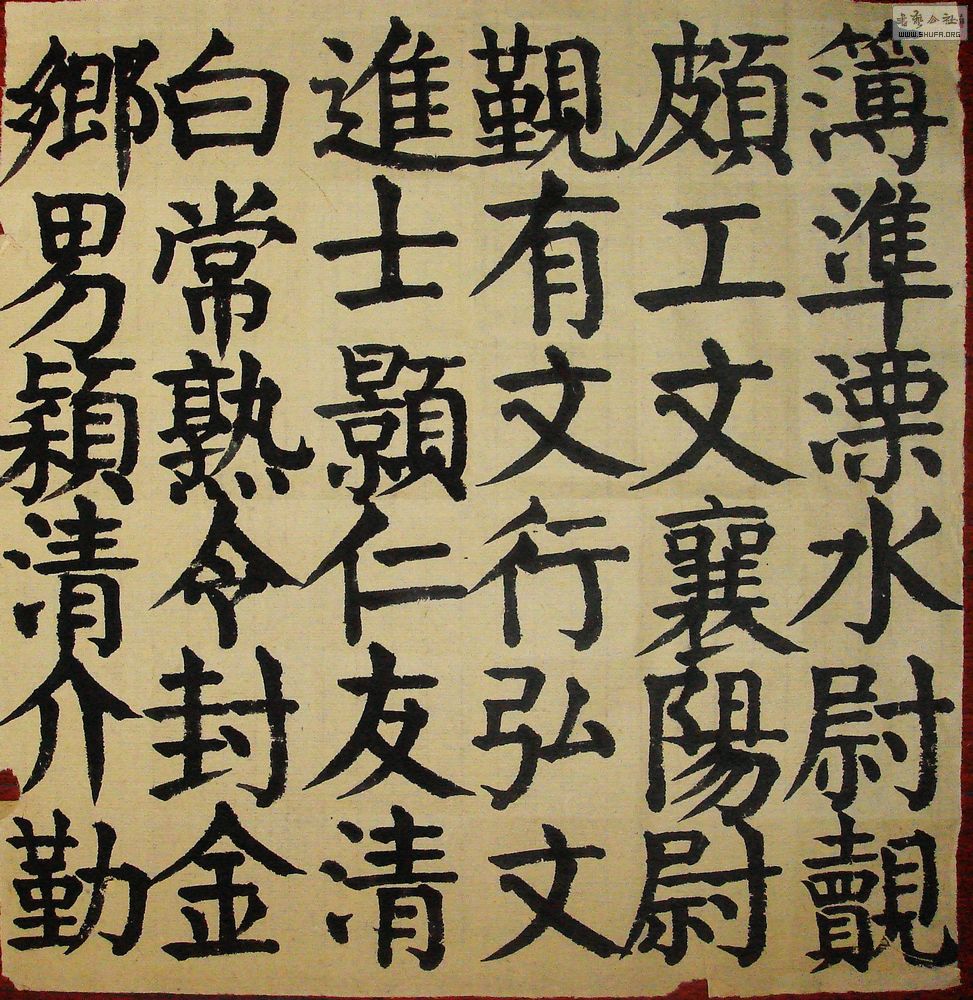 簿準溧水尉覿
頗工文襄陽尉
覲有文行弘文
進士顥仁友清
白常熟令封金
鄉男穎清介勤
WWW.SHUFA.ORG